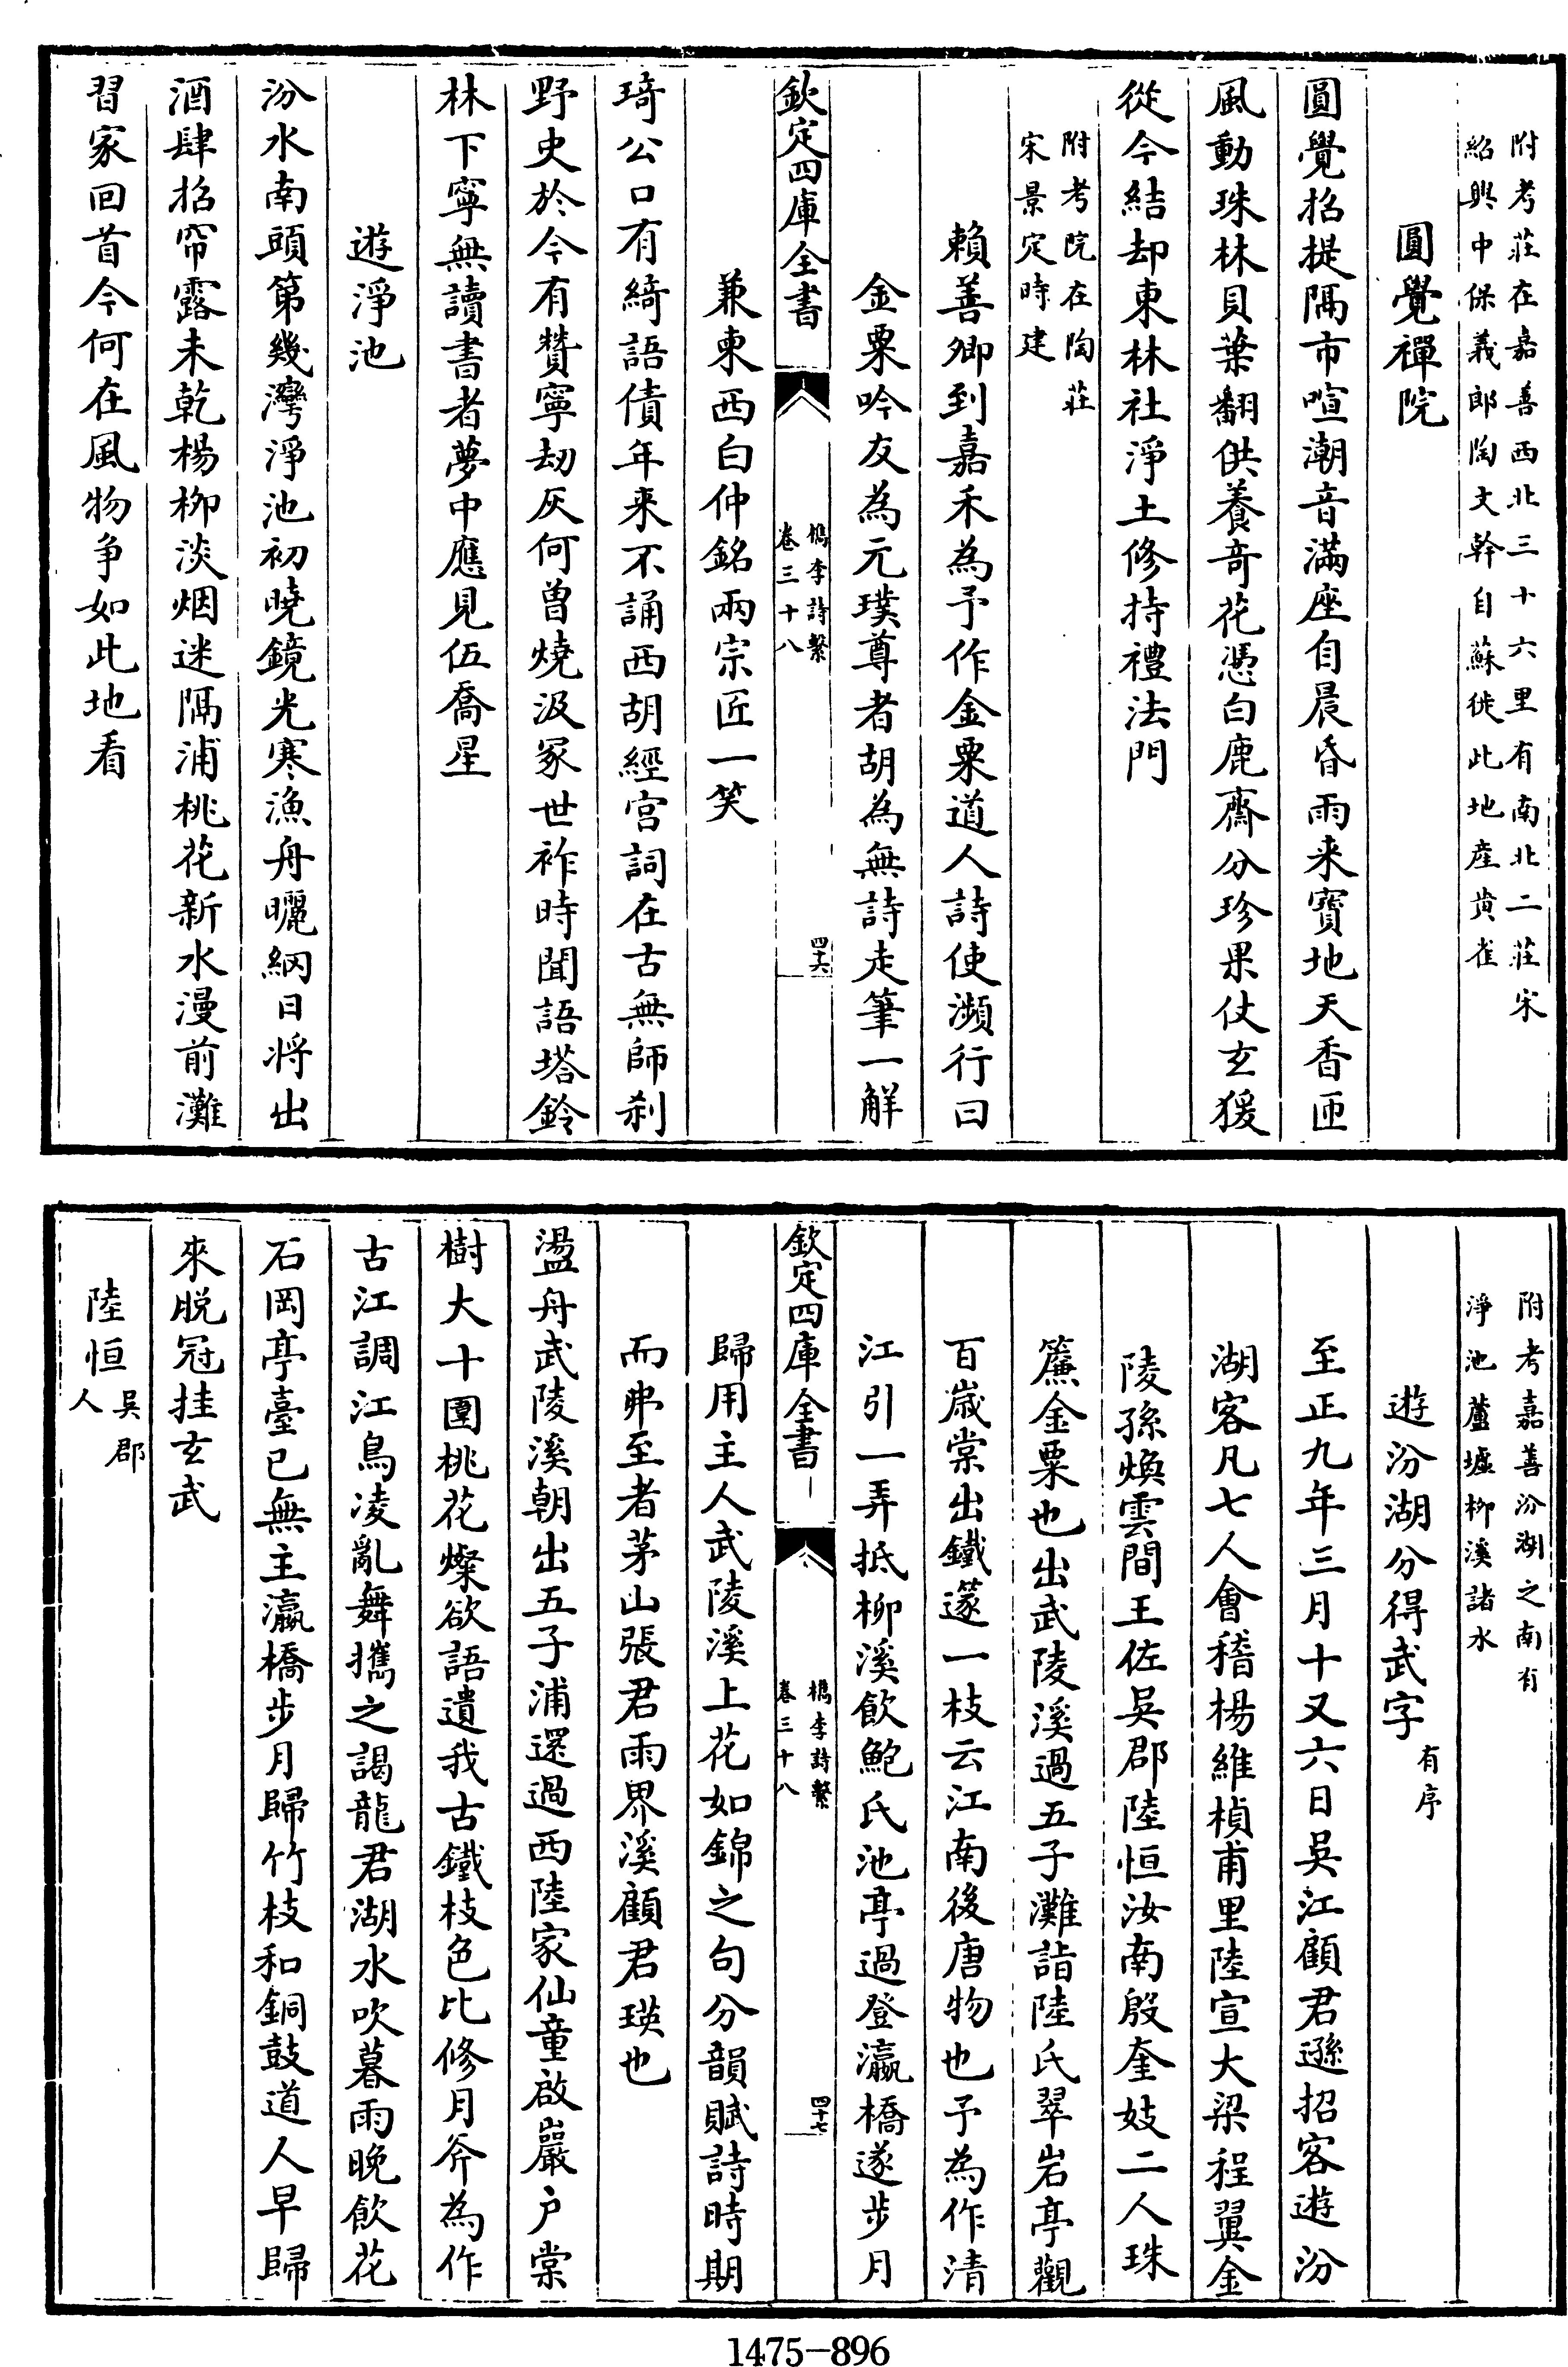 附考莊在嘉善西北三十六里有南北二莊宋
紹興中保義郎陶文幹自蘇徙此地産黄雀
圓覺禪院
圓覺招提隔市喧潮音滿座自晨昏雨来寳地天香匝
風動珠林貝葉翻供養奇花憑白鹿齋分珍果仗玄猨
從今結却東林社淨土修持禮法門
附考院在陶莊
宋景定時建
賴善卿到嘉禾為予作金粟道人詩使瀕行曰
金粟吟友為元璞尊者胡為無詩走筆一解
欽定四庫全書
檇李詩繫
卷三十八
四十六
兼柬西白仲銘兩宗匠一笑
琦公口有綺語債年来不誦西胡經宫詞在古無師刹
野史於今有贊寧刼灰何曾燒汲冢世祚時聞語塔鈴
林下寧無讀書者夢中應見伍喬星
遊淨池
汾水南頭第幾灣淨池初曉鏡光寒漁舟曬網日将出
酒肆招帘露未乾楊柳淡烟迷隔浦桃花新水漫前灘
習家回首今何在風物争如此地看
附考嘉善汾湖之南有
淨池蘆墟柳溪諸水
遊汾湖分得武字有序
至正九年三月十又六日吳江顧君遜招客遊汾
湖客凡七人會稽楊維楨甫里陸宣大梁程翼金
陵孫煥雲間王佐吳郡陸恒汝南殷奎妓二人珠
簾金粟也出武陵溪過五子灘詣陸氏翠岩亭觀
百嵗棠出鐵篴一枝云江南後唐物也予為作清
江引一弄抵柳溪飲鮑氏池亭過登瀛橋遂步月
欽定四庫全書
檇李詩繫
卷三十八
四十七
歸用主人武陵溪上花如錦之句分韻賦詩時期
而弗至者茅山張君雨界溪顧君瑛也
盪舟武陵溪朝出五子浦還過西陸家仙童啟巖户棠
樹大十圍桃花燦欲語遺我古鐵枝色比修月斧為作
古江調江鳥凌亂舞攜之謁龍君湖水吹暮雨晚飲花
石岡亭臺已無主瀛橋步月歸竹枝和銅鼓道人早歸
來脱冠挂玄武
陸恒吳郡人
1475-896